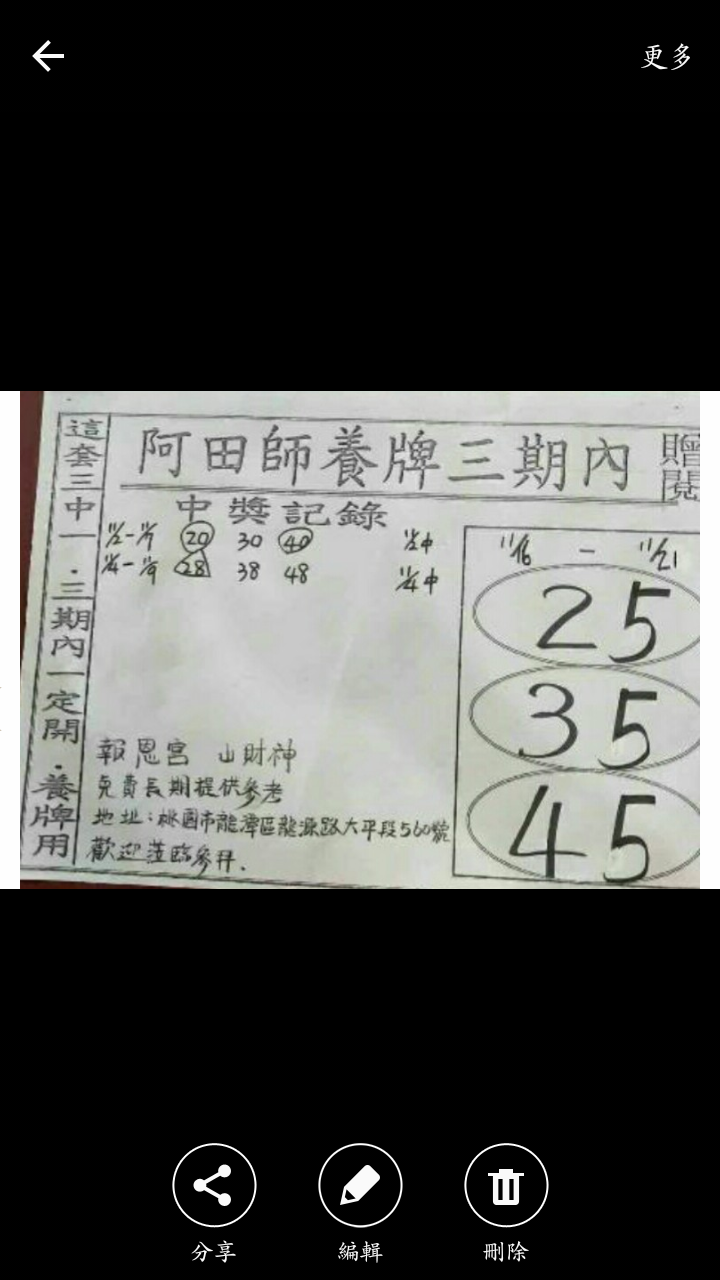 更多
阿田師養牌三期內
贈閱
這套三中一·三期內一定開·養牌用
中獎記錄
11/2-11/7 20 30 40 11/2中
11/4-11/9 28 38 48 11/4中
11/16 - 11/21
25
35
45
報恩宮 山財神
免費長期提供參考
地址:桃園市龍潭區龍源路大平段560號
歡迎蒞臨參拜.
分享
編輯
刪除